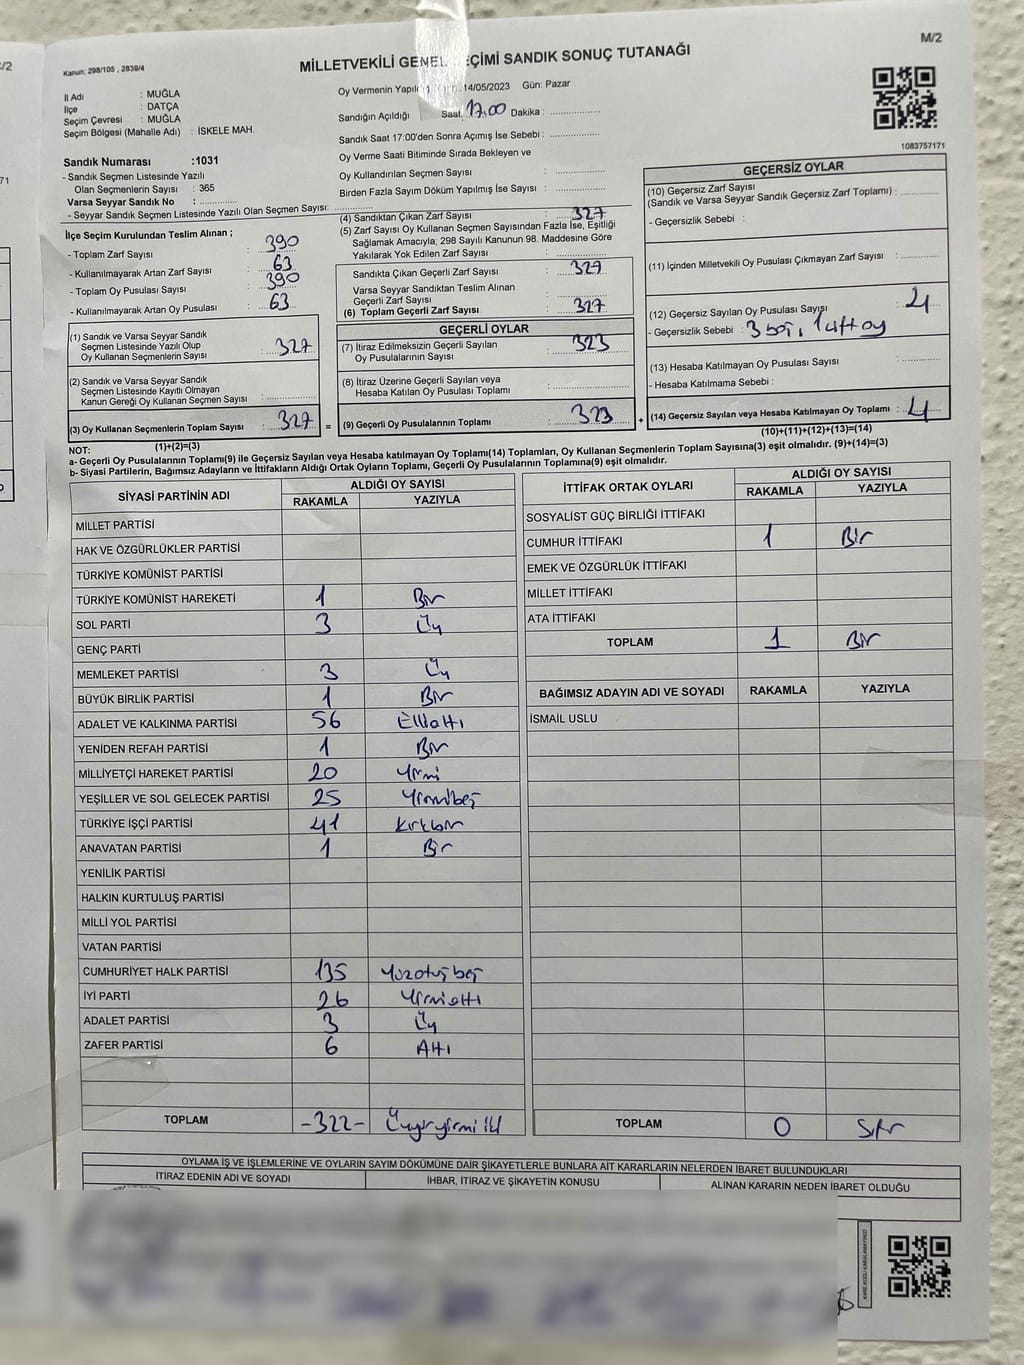 M/2
Kanun: 298/105 , 2839/4
MİLLETVEKİLİ GENEL SEÇİMİ SANDIK SONUÇ TUTANAĞI
İl Adı : MUĞLA
İlçe : DATÇA
Seçim Çevresi : MUĞLA
Seçim Bölgesi (Mahalle Adı) : İSKELE MAH.
Sandık Numarası :1031
- Sandık Seçmen Listesinde Yazılı
Olan Seçmenlerin Sayısı : 365
Varsa Seyyar Sandık No :
- Seyyar Sandık Seçmen Listesinde Yazılı Olan Seçmen Sayısı:
İlçe Seçim Kurulundan Teslim Alınan ;
- Toplam Zarf Sayısı : 390
- Kullanılmayarak Artan Zarf Sayısı : 63
- Toplam Oy Pusulası Sayısı : 390
- Kullanılmayarak Artan Oy Pusulası : 63
(1) Sandık ve Varsa Seyyar Sandık
Seçmen Listesinde Yazılı Olup
Oy Kullanan Seçmenlerin Sayısı : 327
(2) Sandık ve Varsa Seyyar Sandık
Seçmen Listesinde Kayıtlı Olmayan
Kanun Gereği Oy Kullanan Seçmen Sayısı :
(3) Oy Kullanan Seçmenlerin Toplam Sayısı : 327
(1)+(2)=(3)
Oy Vermenin Yapıl 14/05/2023 Gün: Pazar
Sandığın Açıldığı Saat 17.00 Dakika :
Sandık Saat 17:00'den Sonra Açımış İse Sebebi :
Oy Verme Saati Bitiminde Sırada Bekleyen ve
Oy Kullandırılan Seçmen Sayısı :
Birden Fazla Sayım Döküm Yapılmış İse Sayısı :
(4) Sandıktan Çıkan Zarf Sayısı : 327
(5) Zarf Sayısı Oy Kullanan Seçmen Sayısından Fazla İse, Eşitliği
Sağlamak Amacıyla; 298 Sayılı Kanunun 98. Maddesine Göre
Yakılarak Yok Edilen Zarf Sayısı :
Sandıkta Çıkan Geçerli Zarf Sayısı : 327
Varsa Seyyar Sandıktan Teslim Alınan
Geçerli Zarf Sayısı :
(6) Toplam Geçerli Zarf Sayısı : 327
GEÇERLİ OYLAR
(7) İtiraz Edilmeksizin Geçerli Sayılan
Oy Pusulalarının Sayısı : 323
(8) İtiraz Üzerine Geçerli Sayılan veya
Hesaba Katılan Oy Pusulası Toplamı :
= (9) Geçerli Oy Pusulalarının Toplamı : 323 +
1083757171
GEÇERSİZ OYLAR
(10) Geçersiz Zarf Sayısı
(Sandık ve Varsa Seyyar Sandık Geçersiz Zarf Toplamı) :
- Geçersizlik Sebebi :
(11) İçinden Milletvekili Oy Pusulası Çıkmayan Zarf Sayısı :
(12) Geçersiz Sayılan Oy Pusulası Sayısı : 4
- Geçersizlik Sebebi : 3 boş, 1 çift oy
(13) Hesaba Katılmayan Oy Pusulası Sayısı :
- Hesaba Katılmama Sebebi :
(14) Geçersiz Sayılan veya Hesaba Katılmayan Oy Toplamı : 4
(10)+(11)+(12)+(13)=(14)
NOT:
a- Geçerli Oy Pusulalarının Toplamı(9) ile Geçersiz Sayılan veya Hesaba katılmayan Oy Toplamı(14) Toplamları, Oy Kullanan Seçmenlerin Toplam Sayısına(3) eşit olmalıdır. (9)+(14)=(3)
b- Siyasi Partilerin, Bağımsız Adayların ve İttifakların Aldığı Ortak Oyların Toplamı, Geçerli Oy Pusulalarının Toplamına(9) eşit olmalıdır.
SİYASİ PARTİNİN ADI ALDIĞI OY SAYISI
RAKAMLA YAZIYLA
MİLLET PARTİSİ
HAK VE ÖZGÜRLÜKLER PARTİSİ
TÜRKİYE KOMÜNİST PARTİSİ
TÜRKİYE KOMÜNİST HAREKETİ 1 Bir
SOL PARTİ 3 Üç
GENÇ PARTİ
MEMLEKET PARTİSİ 3 Üç
BÜYÜK BİRLİK PARTİSİ 1 Bir
ADALET VE KALKINMA PARTİSİ 56 Ellialtı
YENİDEN REFAH PARTİSİ 1 Bir
MİLLİYETÇİ HAREKET PARTİSİ 20 Yirmi
YEŞİLLER VE SOL GELECEK PARTİSİ 25 Yirmibeş
TÜRKİYE İŞÇİ PARTİSİ 41 Kırkbir
ANAVATAN PARTİSİ 1 Bir
YENİLİK PARTİSİ
HALKIN KURTULUŞ PARTİSİ
MİLLİ YOL PARTİSİ
VATAN PARTİSİ
CUMHURİYET HALK PARTİSİ 135 Yüzotuzbeş
İYİ PARTİ 26 Yirmialtı
ADALET PARTİSİ 3 Üç
ZAFER PARTİSİ 6 Altı
TOPLAM -322- Üçyüzyirmi iki
İTTİFAK ORTAK OYLARI ALDIĞI OY SAYISI
RAKAMLA YAZIYLA
SOSYALİST GÜÇ BİRLİĞİ İTTİFAKI
CUMHUR İTTİFAKI 1 Bir
EMEK VE ÖZGÜRLÜK İTTİFAKI
MİLLET İTTİFAKI
ATA İTTİFAKI
TOPLAM 1 Bir
BAĞIMSIZ ADAYIN ADI VE SOYADI RAKAMLA YAZIYLA
İSMAİL USLU
TOPLAM 0 Sıfır
OYLAMA İŞ VE İŞLEMLERİNE VE OYLARIN SAYIM DÖKÜMÜNE DAİR ŞİKAYETLERLE BUNLARA AİT KARARLARIN NELERDEN İBARET BULUNDUKLARI
İTİRAZ EDENİN ADI VE SOYADI İHBAR, İTİRAZ VE ŞİKAYETİN KONUSU ALINAN KARARIN NEDEN İBARET OLDUĞU
KARE KODU KARALAMAYINIZ